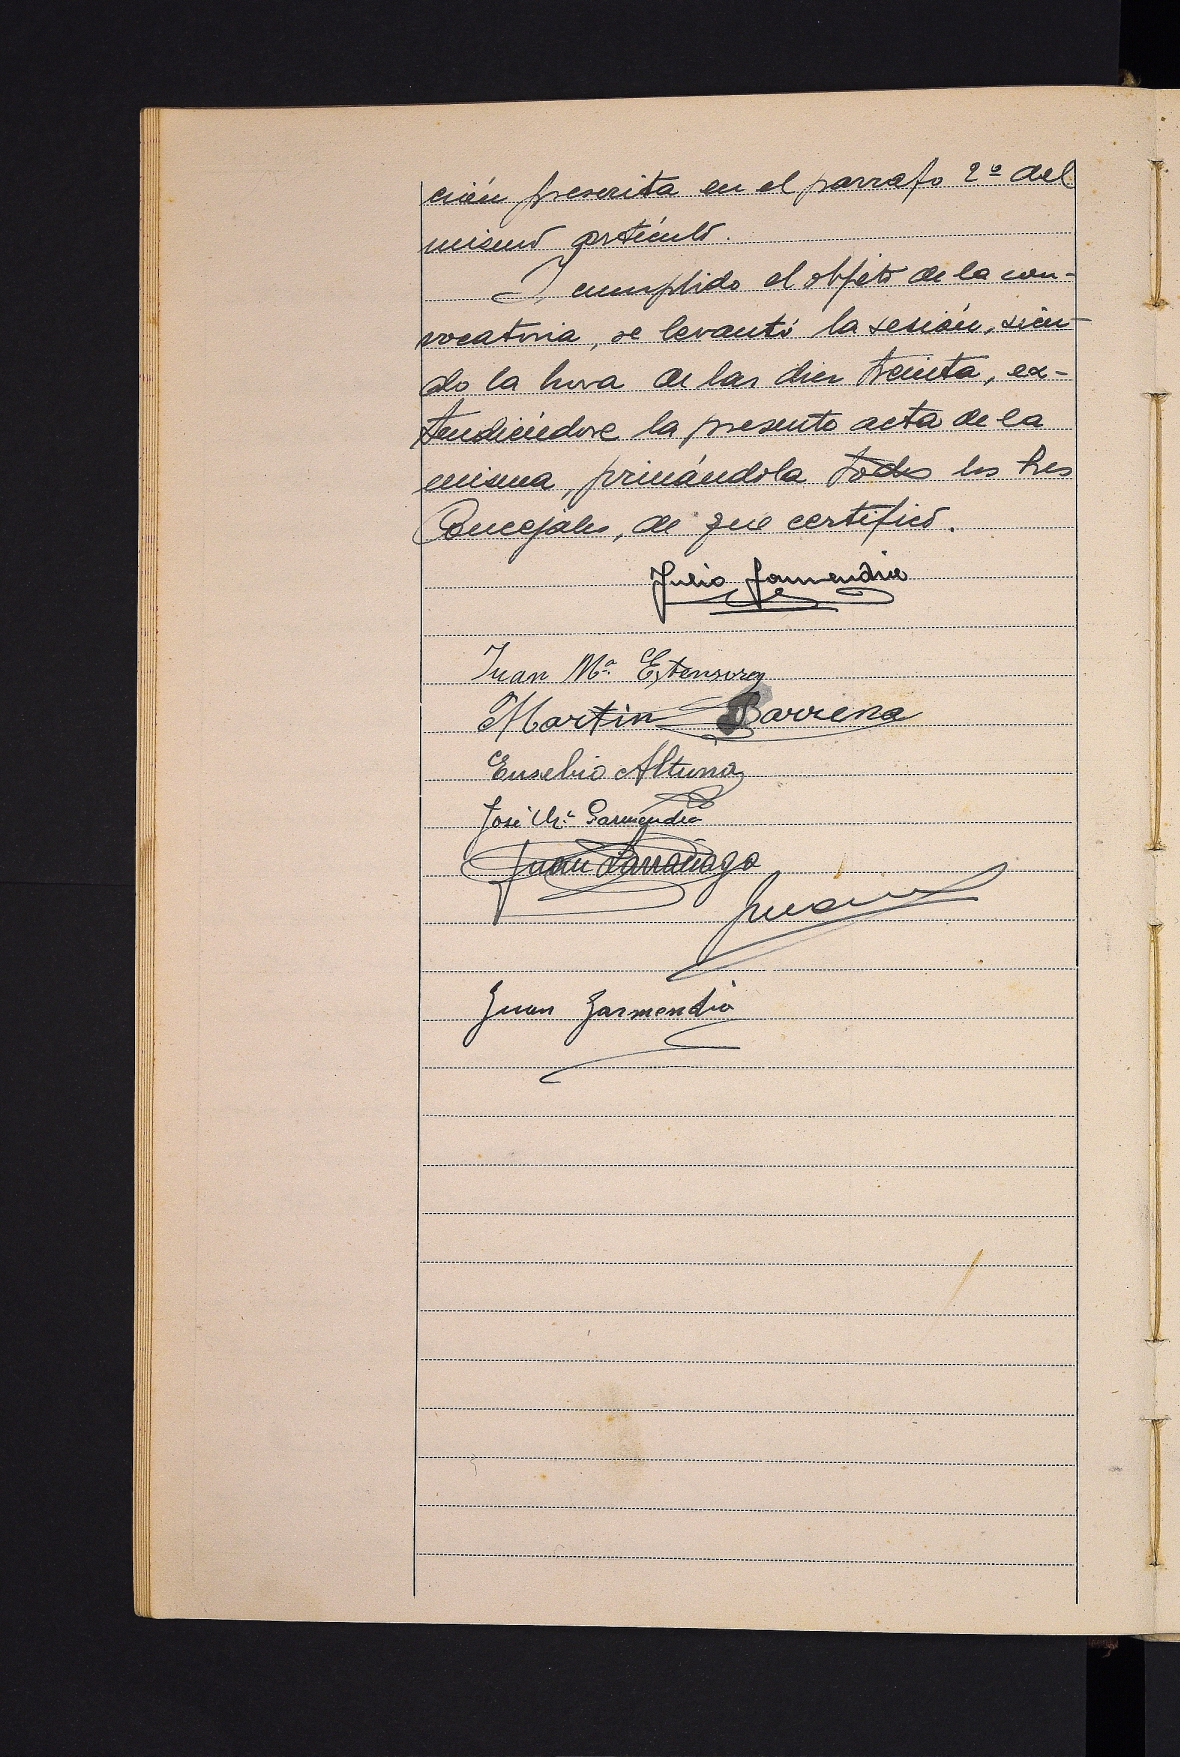 ción prescrita en el parrafo 2º del
mismo artículo.
Y cumplido el objeto de la con-
vocatoria, se levantó la sesión, sien-
do la hora de las diez treinta, ex-
tendiéndose la presente acta de la
misma, firmándola todos los tres
Concejales, de que certifico.
Julio Garmendia
Juan Mª Estensoro
Martin Barrena
Eusebio Altuna
José Mª Garmendia
Juan Larrañaga
Juan Garmendia